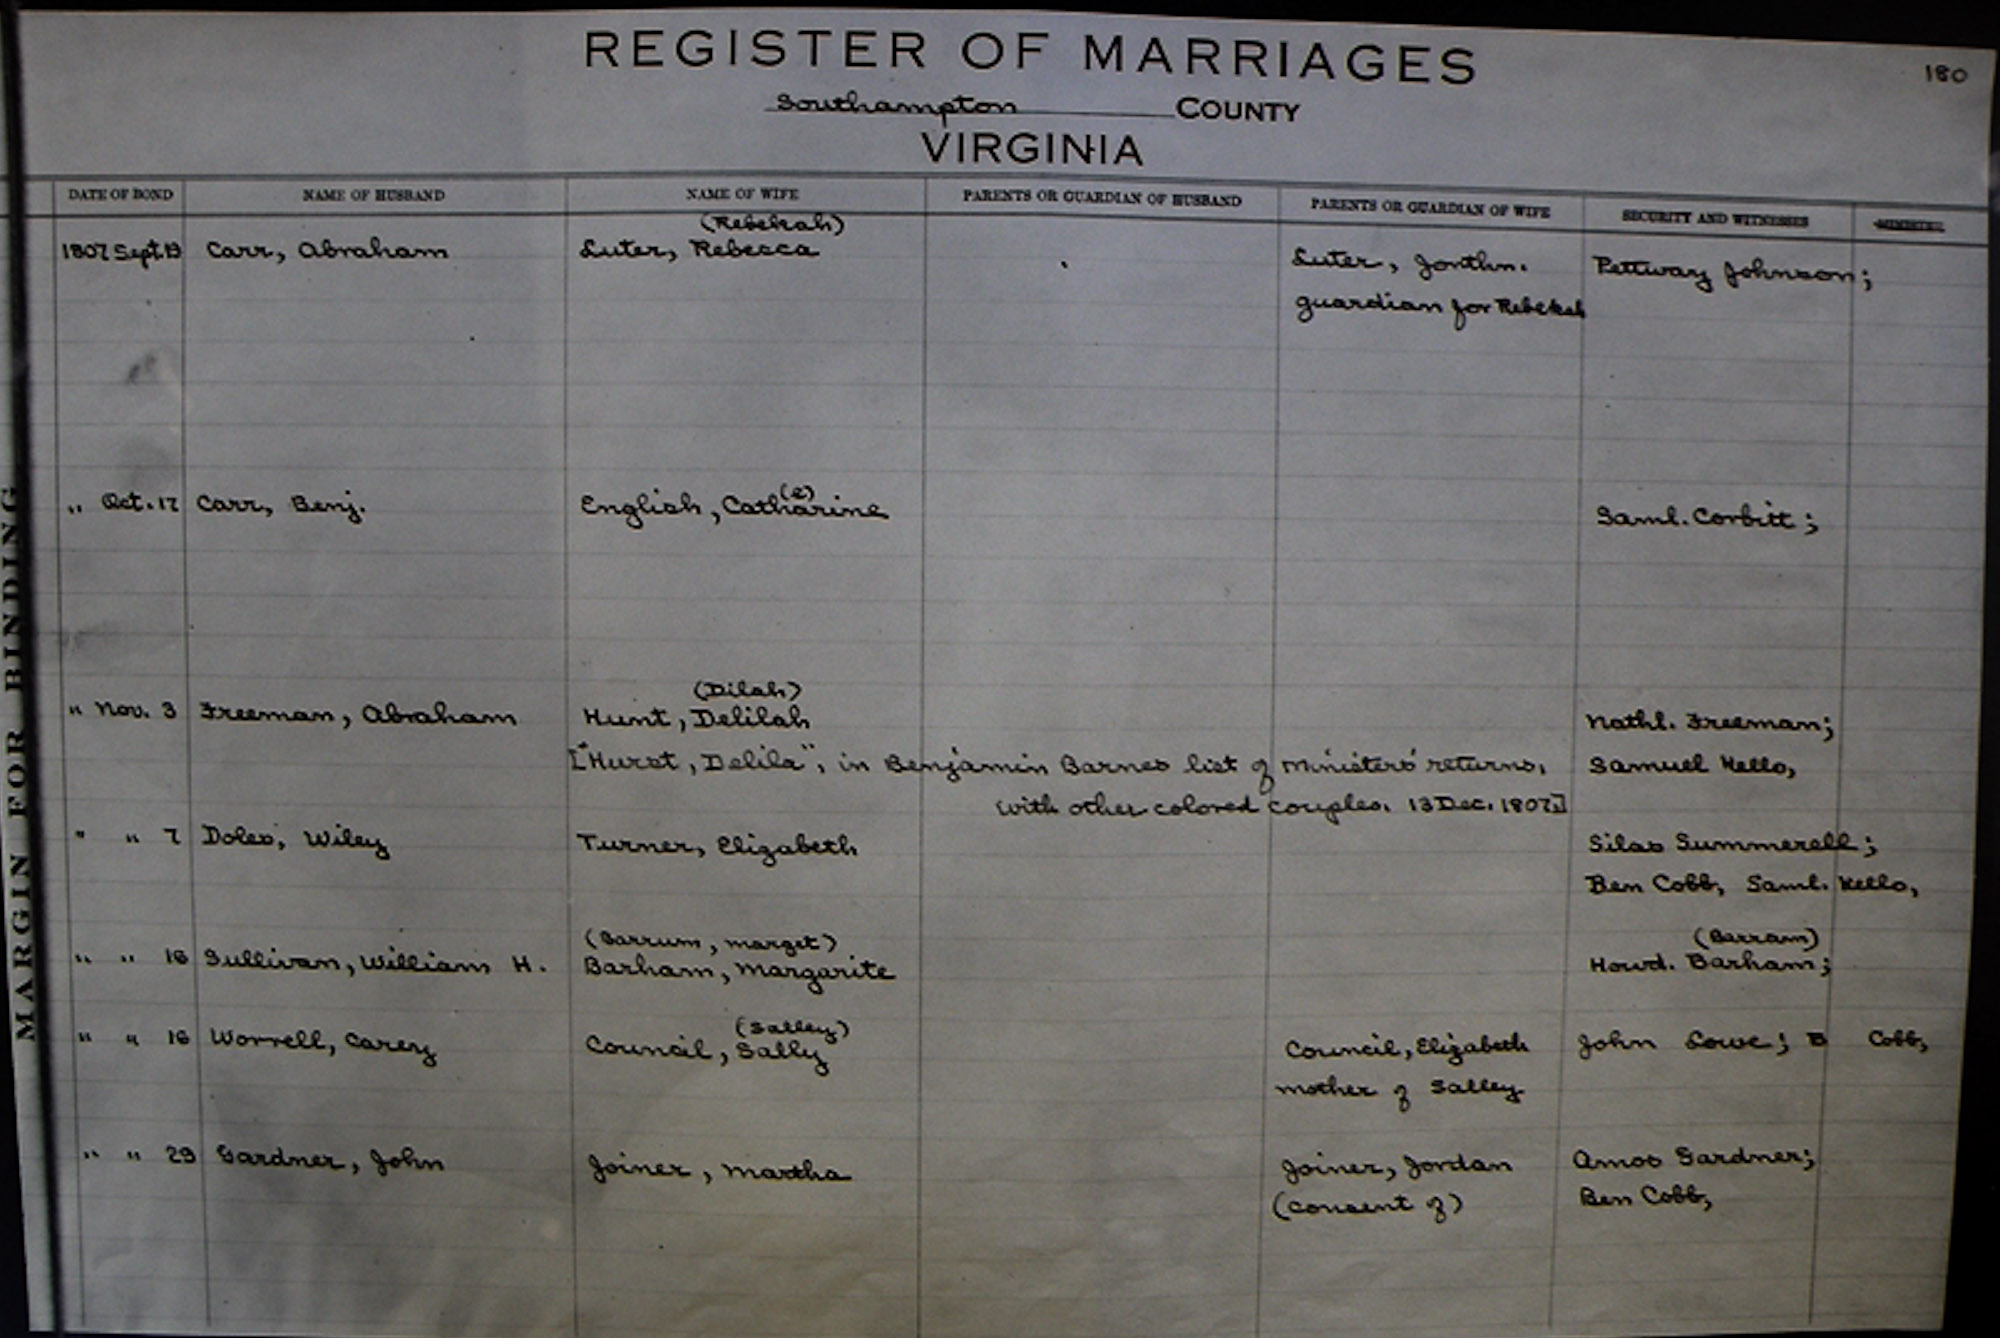 REGISTER OF MARRIAGES
180
Southampton COUNTY
VIRGINIA
DATE OF BOND NAME OF HUSBAND NAME OF WIFE PARENTS OR GUARDIAN OF HUSBAND PARENTS OR GUARDIAN OF WIFE SECURITY AND WITNESSES MINISTER
(Rebekah)
1807 Sept. 19 Carr, Abraham Luter, Rebecca Luter, Jonthn. Pettway Johnson;
guardian for Rebekah
(e)
" Oct. 17 Carr, Benj. English, Catharine Saml. Corbitt;
(Dilah)
" Nov. 3 Freeman, Abraham Hunt, Delilah Nathl. Freeman;
["Hurst, Delila", in Benjamin Barnes list of ministers' returns, Samuel Kello,
with other colored couples. 13 Dec. 1807]
" " 7 Doles, Wiley Turner, Elizabeth Silas Summerell;
Ben Cobb, Saml. Kello,
(Barrum, Marget) (Barram)
" " 16 Sullivan, William H. Barham, Margarite Howd. Barham;
(Salley)
" " 16 Worrell, Carey Council, Sally Council, Elizabeth John Lowe; B Cobb,
mother of Salley
" " 29 Gardner, John Joiner, Martha Joiner, Jordan Amos Gardner;
(consent of) Ben Cobb,
MARGIN FOR BINDING